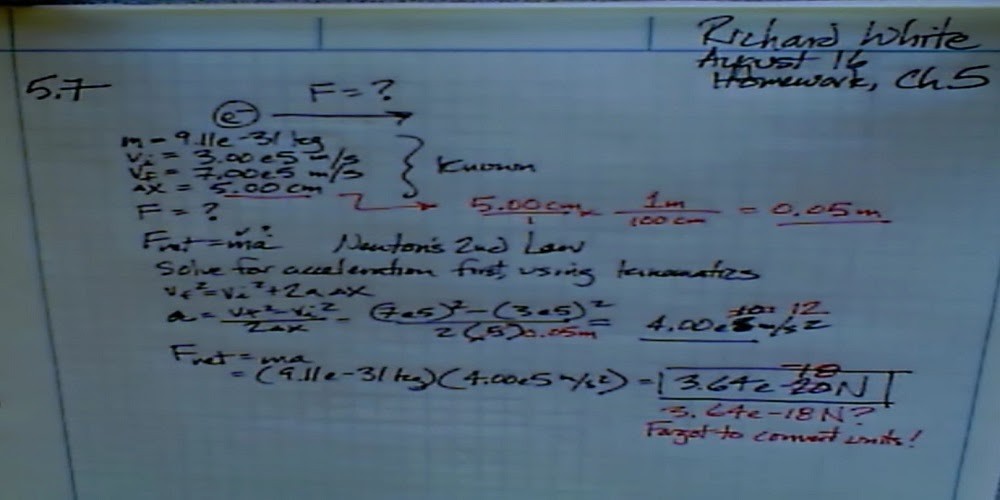 Richard White
August 16
Homework, Ch.5
5.7
F = ?
e-
m = 9.11e-31 kg
vi = 3.00e5 m/s
vf = 7.00e5 m/s
Δx = 5.00 cm
Known
5.00 cm × 1m / 100 cm = 0.05m
1
F = ?
Fnet = ma Newton's 2nd Law
Solve for acceleration first, using kinematics
vf² = vi² + 2aΔx
a = vf² - vi² / 2Δx = (7e5)² - (3e5)² / 2(.5) 0.05m = 4.00e m/s²
12
Fnet = ma
= (9.11e-31 kg)(4.00e5 m/s²) = 3.64e-20N
-18
3.64e-18N?
Forgot to convert units!